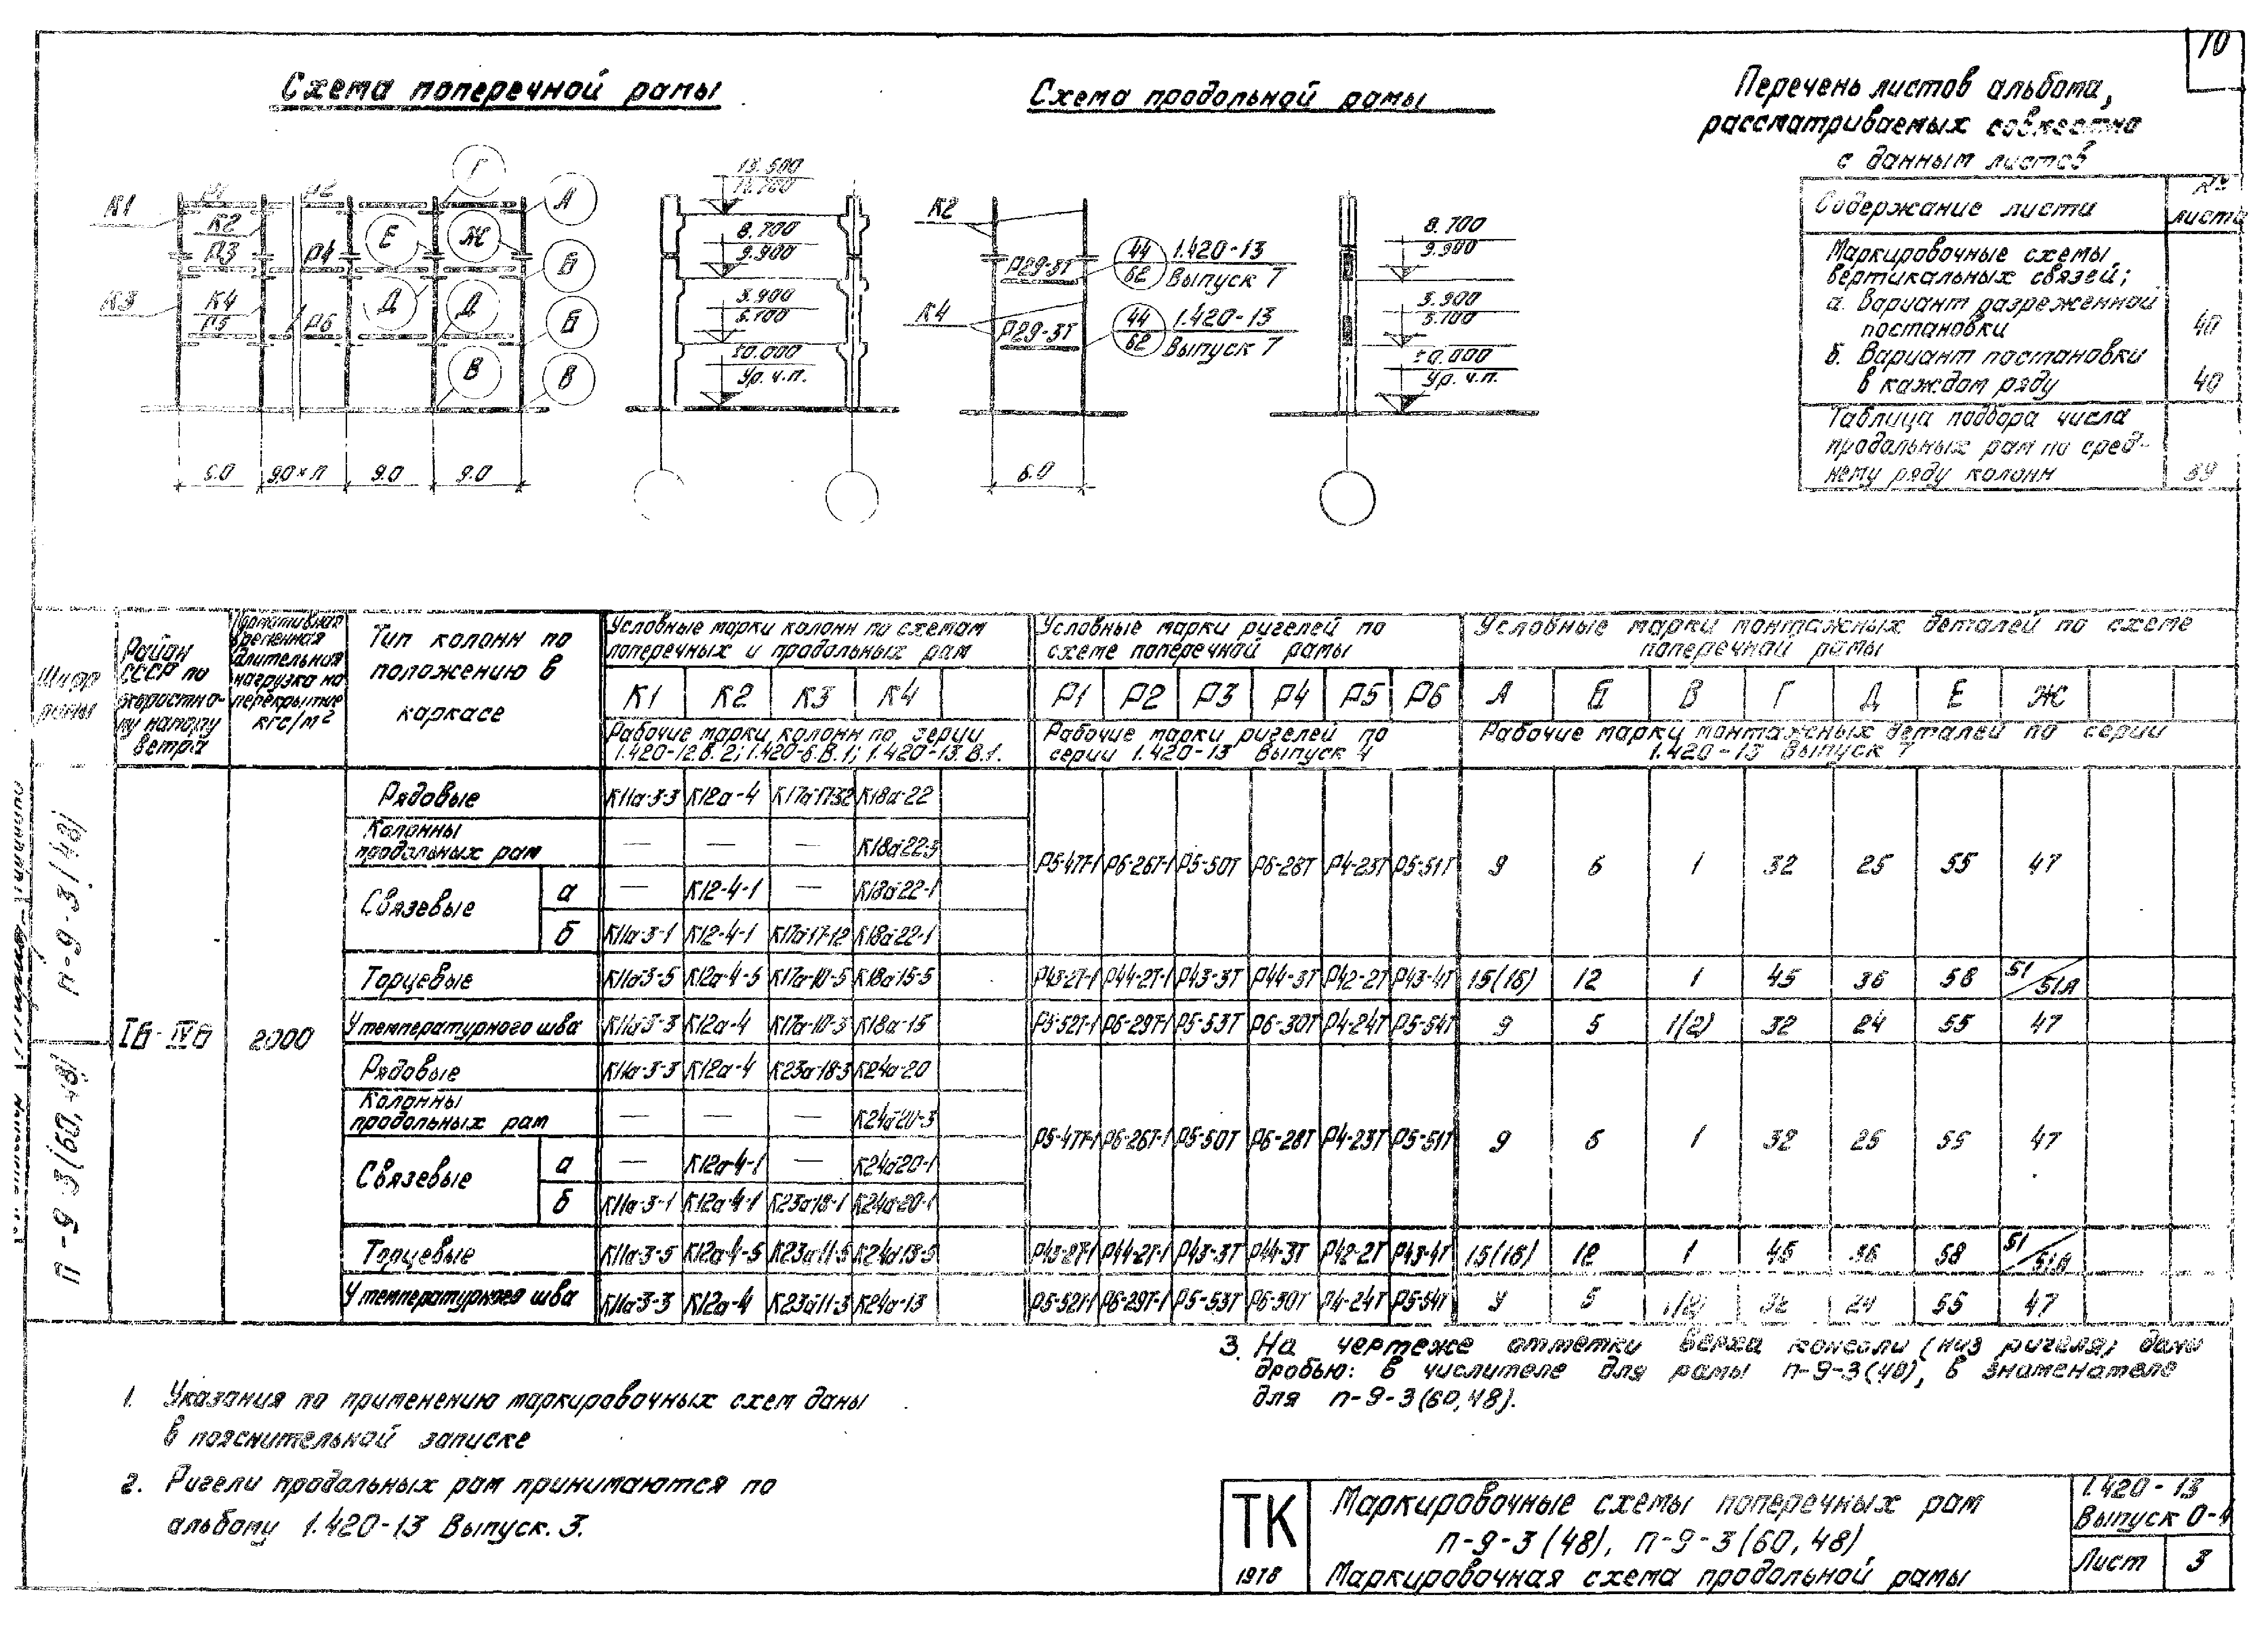 10
Схема поперечной рамы
Схема продольной рамы
Перечень листов альбома,
рассматриваемых совместно
с данным листов
Содержание листа
№№ листа
Маркировочные схемы
вертикальных связей;
а. Вариант разреженной
постановки
40
б. Вариант постановки
в каждом ряду
40
Таблица подбора числа
продольных рам по сред-
нему ряду колонн
К1
К2
Р3
Р4
К3
К4
Р5
Р6
Г
А
Е
Ж
Б
Д
Д
Б
В
В
6.0
9.0×п
9.0
9.0
8.700
9.900
3.900
5.100
±0.000
Ур. ч.п.
К2
К4
Р29-3Т
Р29-3Т
44
62
1.420-13
Выпуск 7
44
62
1.420-13
Выпуск 7
6.0
8.700
9.900
3.900
5.100
±0.000
Ур. ч.п.
Шифр рамы
Район
СССР по
скоростно-
му напору
ветра
Нормативная
временная
длительная
нагрузка на
перекрытие
кгс/м²
Тип колонн по
положению в
каркасе
Условные марки колонн по схемам
поперечных и продольных рам
К1 К2 К3 К4
Рабочие марки колонн по серии
1.420-12.В.2; 1.420-6.В.1; 1.420-13.В.1.
Условные марки ригелей по
схеме поперечной рамы
Р1 Р2 Р3 Р4 Р5 Р6
Рабочие марки ригелей по
серии 1.420-13 Выпуск 4
Условные марки монтажных деталей по схеме
поперечной рамы
А Б В Г Д Е Ж
Рабочие марки монтажных деталей по серии
1.420-13 Выпуск 7
п-9-3(48)
п-9-3(60,48)
Iб-IVб
2000
Рядовые К11а-3-3 К12а-4 К18а-22
Колонны
продольных рам — — — К18а-22-3
Р5-47Т-1 Р6-26Т-1 Р5-50Т Р6-28Т Р4-23Т Р5-51Т 9 6 1 32 25 55 47
Связевые а — К12-4-1 — К18а-22-1
б К11а-3-1 К12-4-1 К17а-17-12 К18а-22-1
Торцевые К11а-3-5 К12а-4-5 К17а-10-5 К18а-15-5 Р43-2Т-1 Р44-2Т-1 Р43-3Т Р44-3Т Р42-2Т Р43-4Т 15(16) 12 1 45 36 58 51/51А
У температурного шва К11а-3-3 К12а-4 К17а-10-3 К18а-15 Р5-52Т-1 Р6-29Т-1 Р5-53Т Р6-30Т Р4-24Т Р5-54Т 9 5 1(2) 32 24 55 47
Рядовые К11а-3-3 К12а-4 К23а-18-3 К24а-20
Колонны
продольных рам — — — К24а-20-3
Р5-47Т-1 Р6-26Т-1 Р5-50Т Р6-28Т Р4-23Т Р5-51Т 9 6 1 32 25 55 47
Связевые а — К12а-4-1 — К24а-20-1
б К11а-3-1 К12а-4-1 К23а-18-1 К24а-20-1
Торцевые К11а-3-5 К12а-4-5 К23а-11-5 К24а-13-5 Р43-2Т-1 Р44-2Т-1 Р43-3Т Р44-3Т Р42-2Т Р43-4Т 15(16) 12 1 45 36 58 51/51А
У температурного шва К11а-3-3 К12а-4 К23а-11-3 К24а-13 Р5-52Т-1 Р6-29Т-1 Р5-53Т Р6-30Т Р4-24Т Р5-54Т 9 5 1(2) 32 24 55 47
1. Указания по применению маркировочных схем даны
в пояснительной записке
2. Ригели продольных рам принимаются по
альбому 1.420-13 Выпуск. 3.
3. На чертеже отметки верха консоли (низ ригеля) даны
дробью: в числителе для рамы п-9-3(48), в знаменателе
для п-9-3(60,48).
ТК
1978
Маркировочные схемы поперечных рам
п-9-3(48), п-9-3(60,48)
Маркировочная схема продольной рамы
1.420-13
Выпуск 0-4
Лист 3